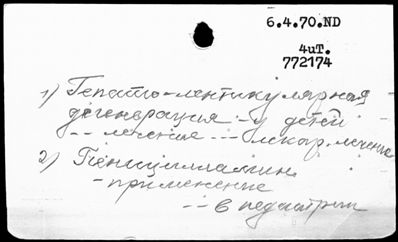 6.4.70.ND
4иТ.
772174
1) Гепато-лентикулярная
дегенерация - у детей
-- лечение --- лекар. лечение
2) Пеницилламин
- применение
-- в педиатрии